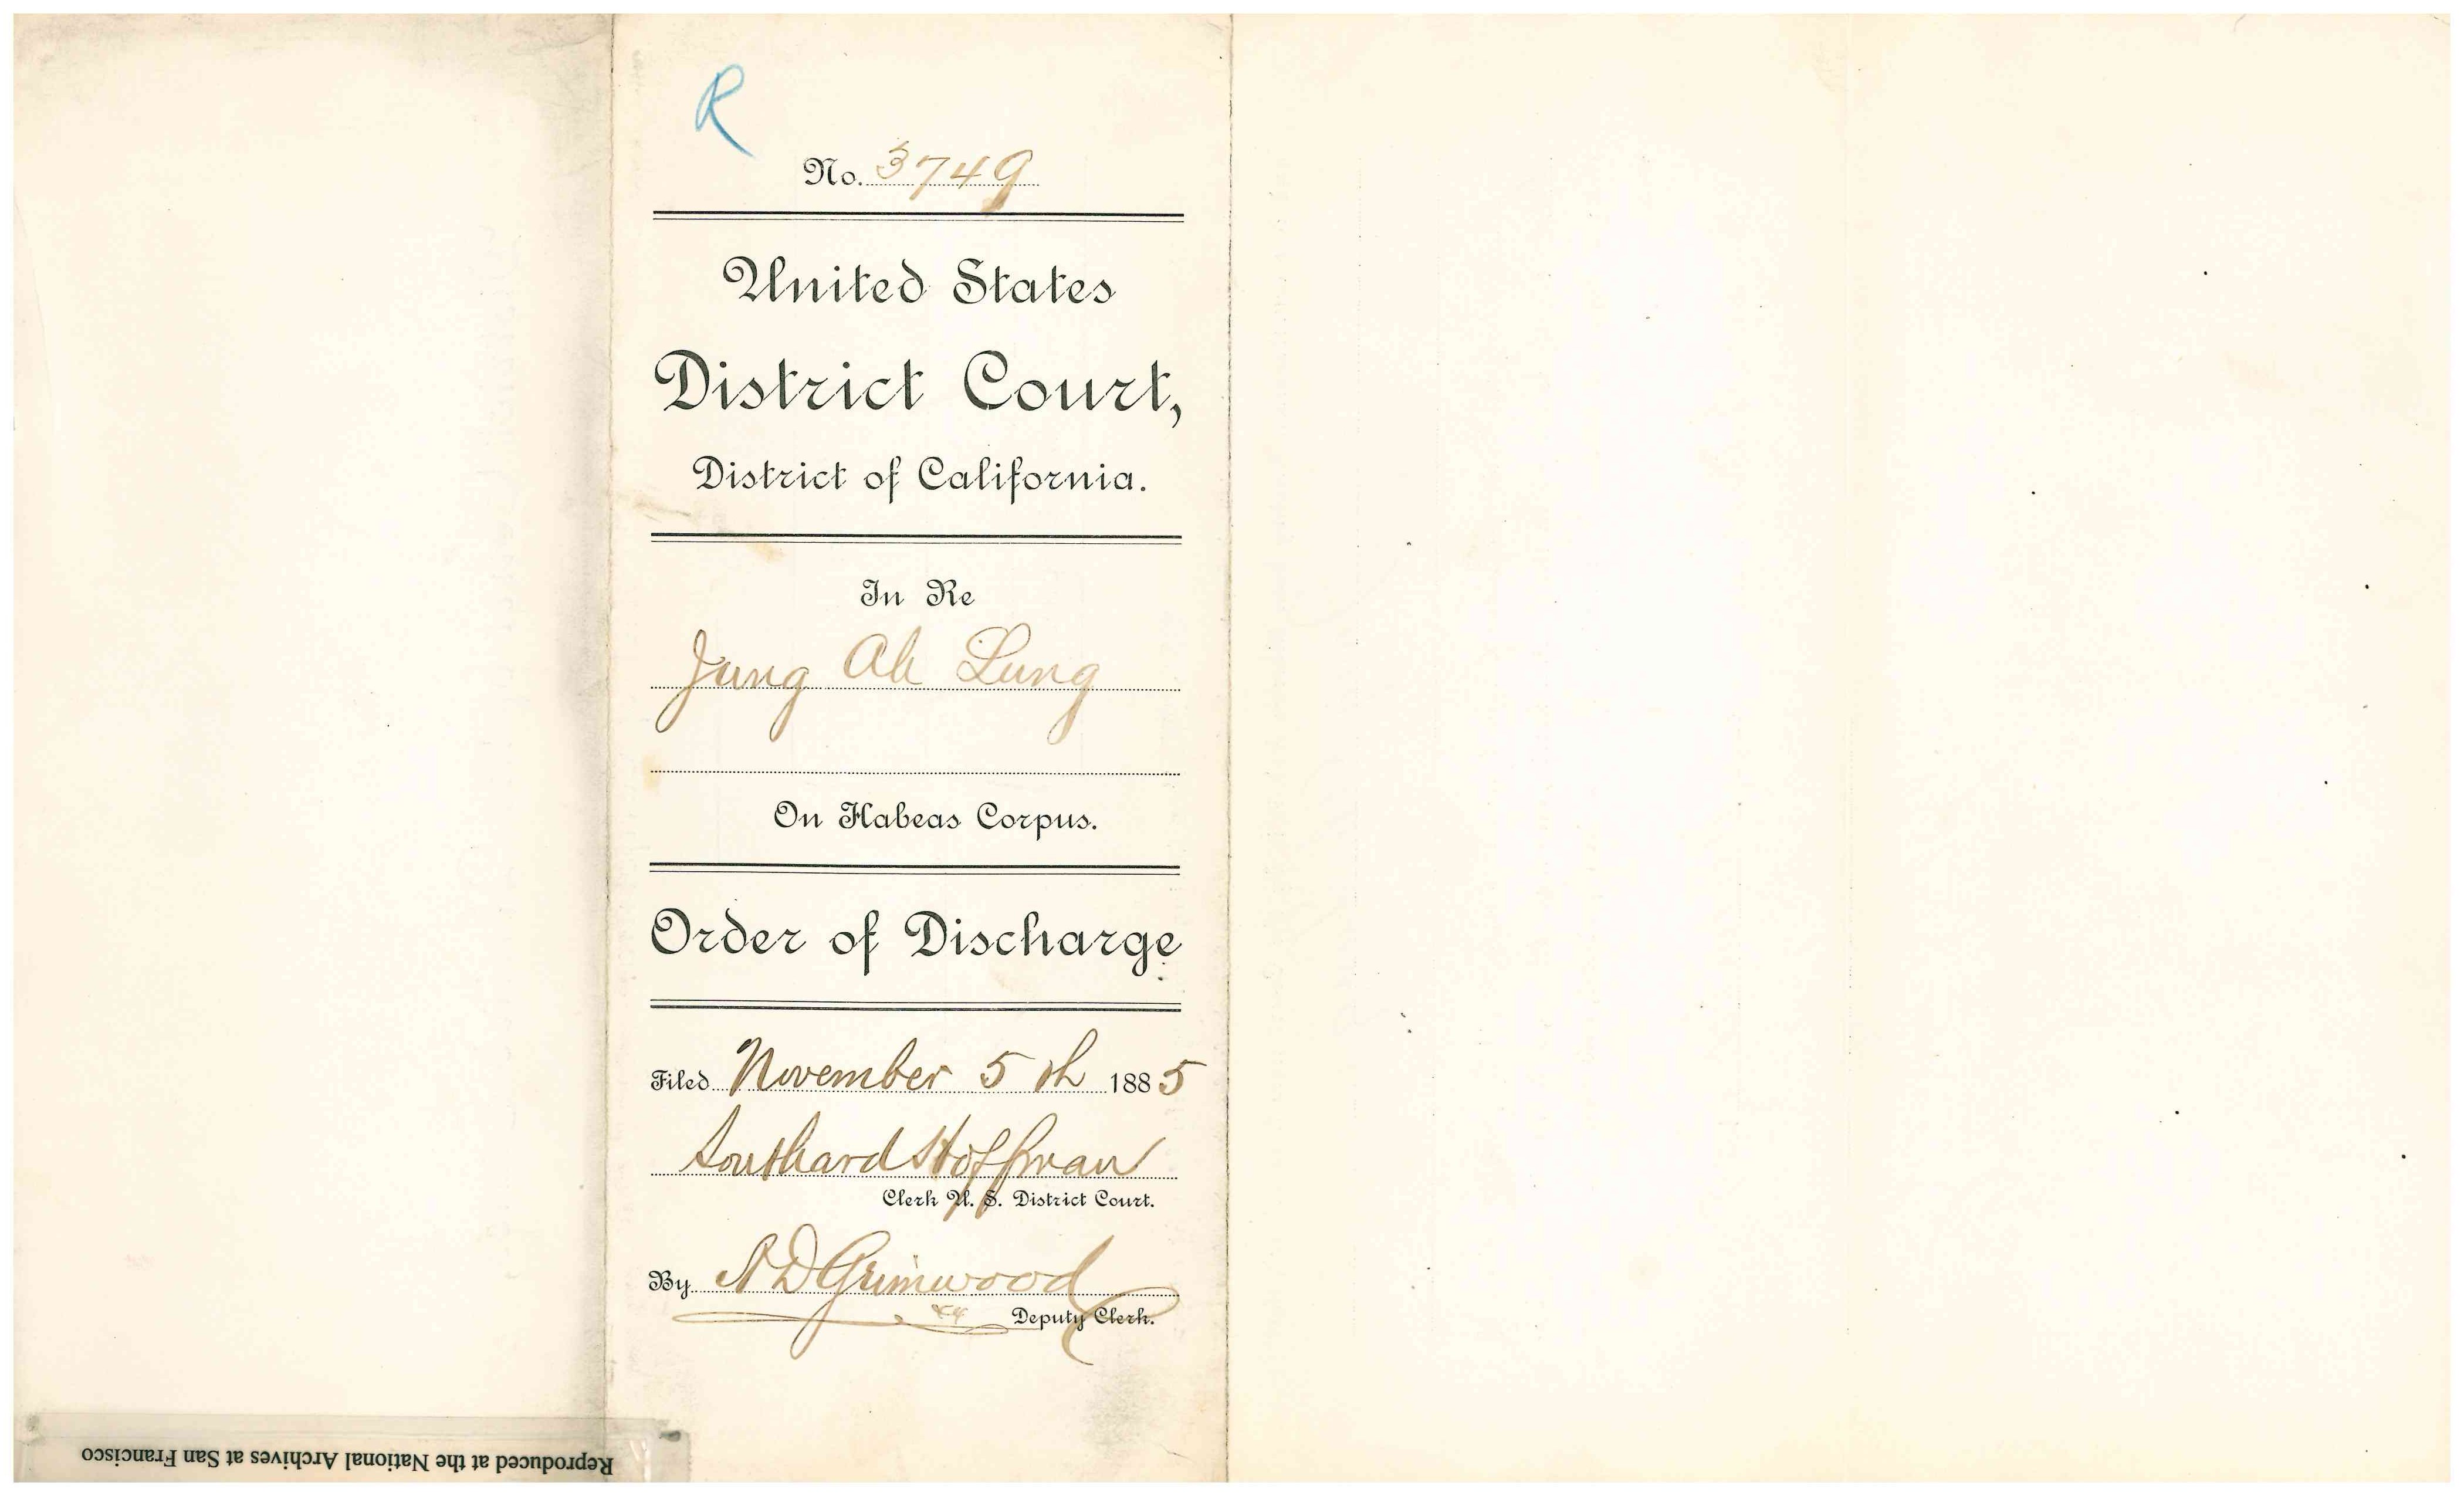 R
No. 3749
United States
District Court,
District of California.
In Re
Jung Ah Lung
On Habeas Corpus.
Order of Discharge
Filed November 5th 1885
Southard Hoffman
Clerk U. S. District Court.
By DGrimwood
Deputy Clerk.
Reproduced at the National Archives at San Francisco